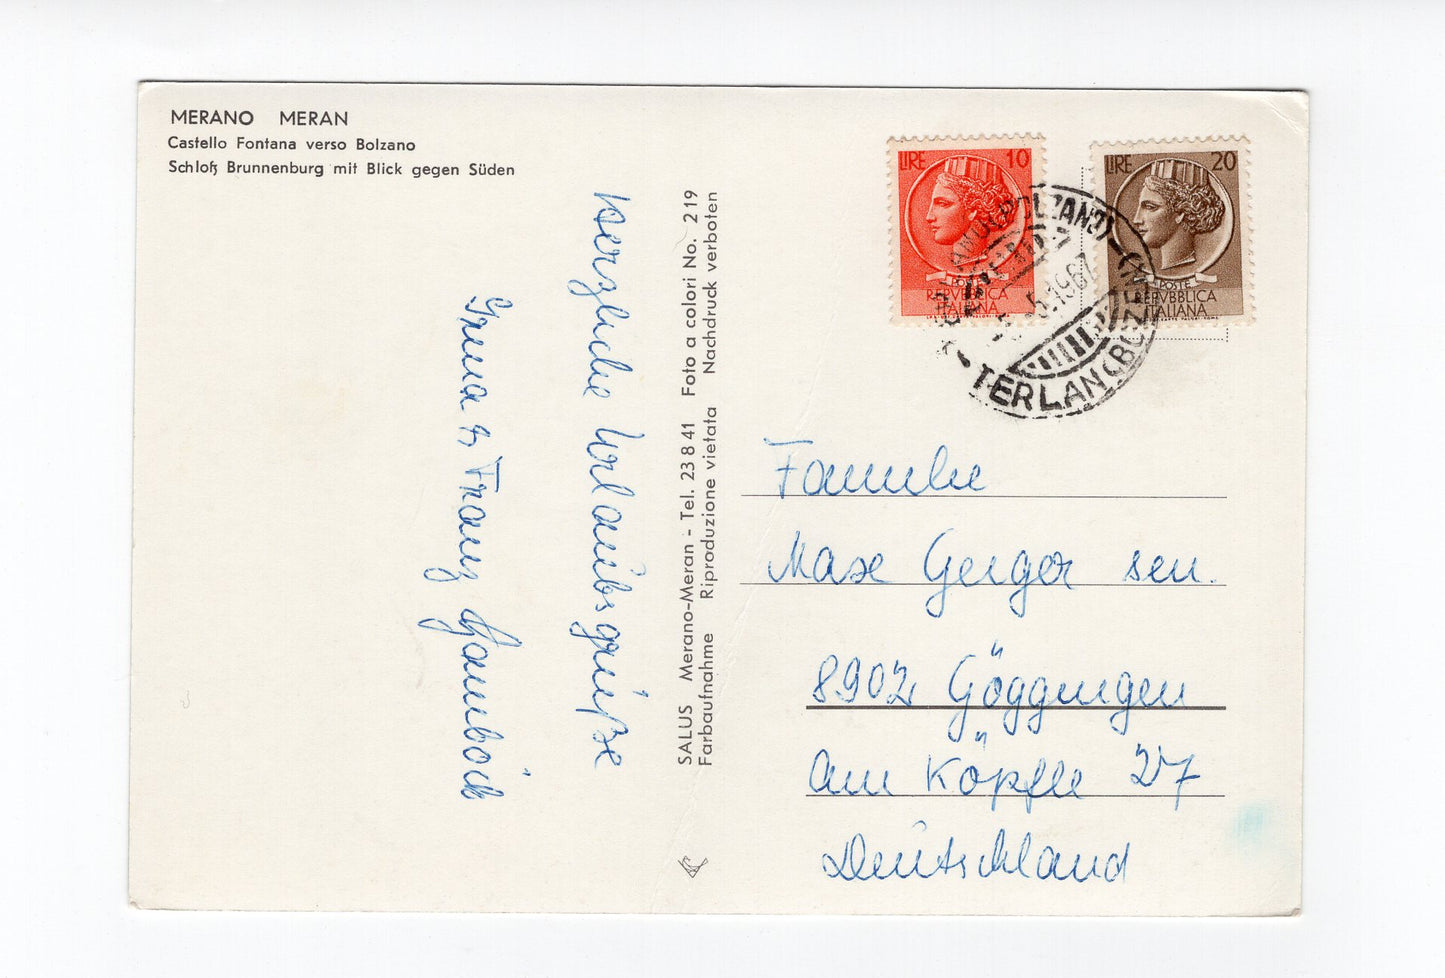 MERANO MERAN
Castello Fontana verso Bolzano
Schloß Brunnenburg mit Blick gegen Süden
LIRE 10
POSTE
REPVBBLICA
ITALIANA
LIRE 20
POSTE
REPVBBLICA
ITALIANA
BOLZANO
1967
TERLAN (BOLZANO)
Herzliche Urlaubsgrüße
Irma & Franz
SALUS Merano-Meran - Tel. 23 8 41 Foto a colori No. 219
Farbaufnahme Riproduzione vietata Nachdruck verboten
Familie
Max Geiger sen.
8902 Göggingen
Am Köpfle 27
Deutschland